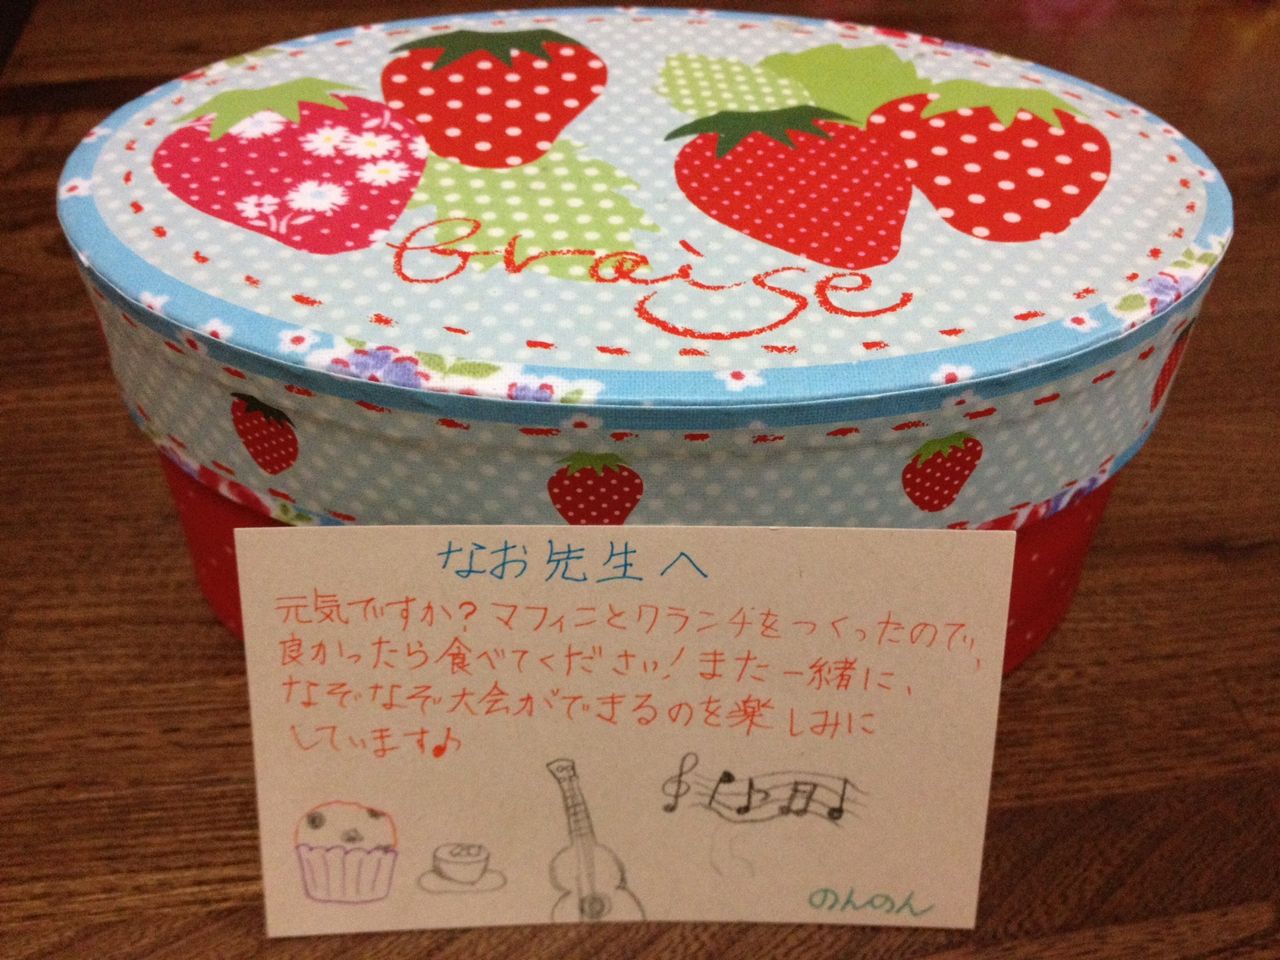 Braise
なお先生へ
元気ですか?マフィンとクランチをつくったので、
良かったら食べてください!また一緒に、
なぞなぞ大会ができるのを楽しみに
しています♪
のんのん